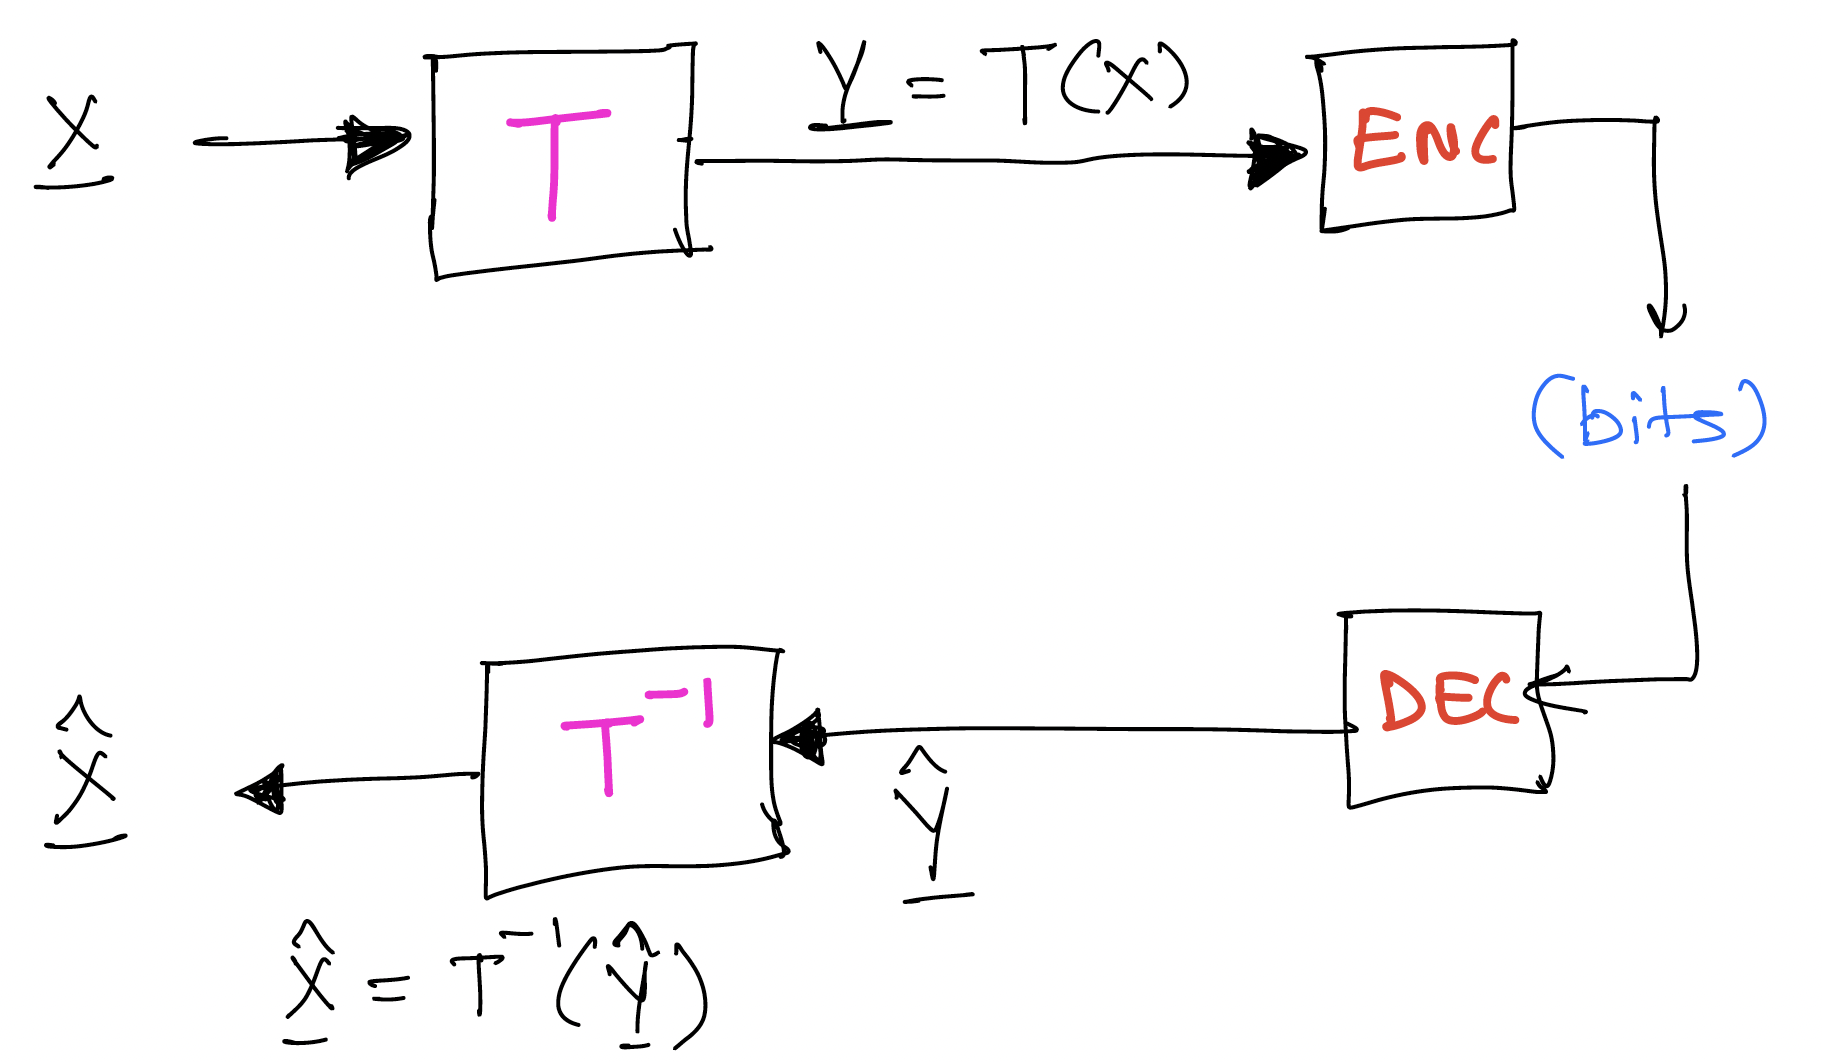 X
T
Y = T(X)
ENC
(bits)
DEC
Ŷ
T⁻¹
X̂
X̂ = T⁻¹(Ŷ)